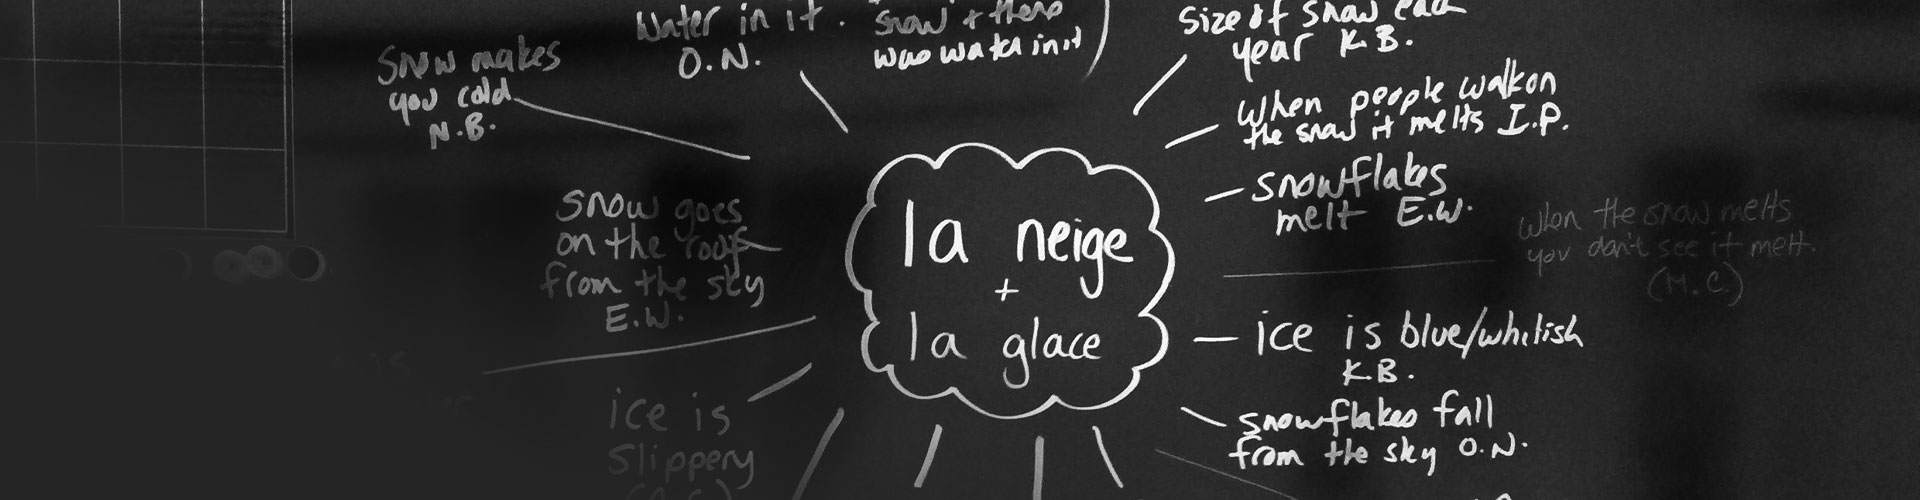 Water in it.
O.N.
snow + there
was water in it
Size of snow each
year K.B.
Snow makes
you cold
N.B.
when people walk on
the snow it melts I.P.
snowflakes
melt E.W.
snow goes
on the roof
from the sky
E.W.
la neige
+
la glace
when the snow melts
you don't see it melt.
(M.C.)
ice is blue/whitish
K.B.
ice is
slippery
snowflakes fall
from the sky O.N.